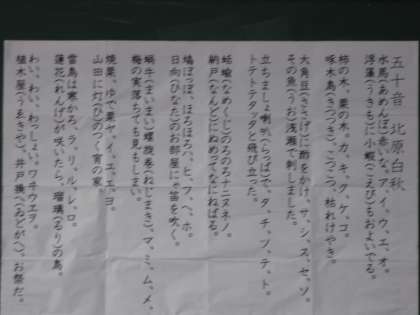 五十音　北原白秋
水馬(あめんぼ)赤いな。ア、イ、ウ、エ、オ。
浮藻(うきも)に小蝦(こえび)もおよいでる。
柿の木、栗の木。カ、キ、ク、ケ、コ。
啄木鳥(きつつき)こつこつ、枯れけやき。
大角豆(ささげ)に酢をかけ、サ、シ、ス、セ、ソ。
その魚(うお)浅瀬で刺しました。
立ちましょ喇叭(らっぱ)で、タ、チ、ツ、テ、ト。
トテトテタッタと飛び立った。
蛞蝓(なめくじ)のろのろナニヌネノ。
納戸(なんど)にぬめってなにねばる。
鳩ぽっぽ、ほろほろハ、ヒ、フ、ヘ、ホ。
日向(ひなた)のお部屋にゃ笛を吹く。
蝸牛(まいまい)螺旋巻(ねじまき)、マ、ミ、ム、メ、モ。
梅の実落ちても見もしまい。
焼栗、ゆで栗ヤ、イ、ユ、エ、ヨ。
山田に灯(ひ)のつく宵の家。
雷鳥は寒かろ、ラ、リ、ル、レ、ロ。
蓮花(れんげ)が咲いたら、瑠璃(るり)の鳥。
わい、わい、わっしょい。ワヰウヱヲ。
植木屋(うゑきや)、井戸換へ(ゐどがへ)、お祭だ。